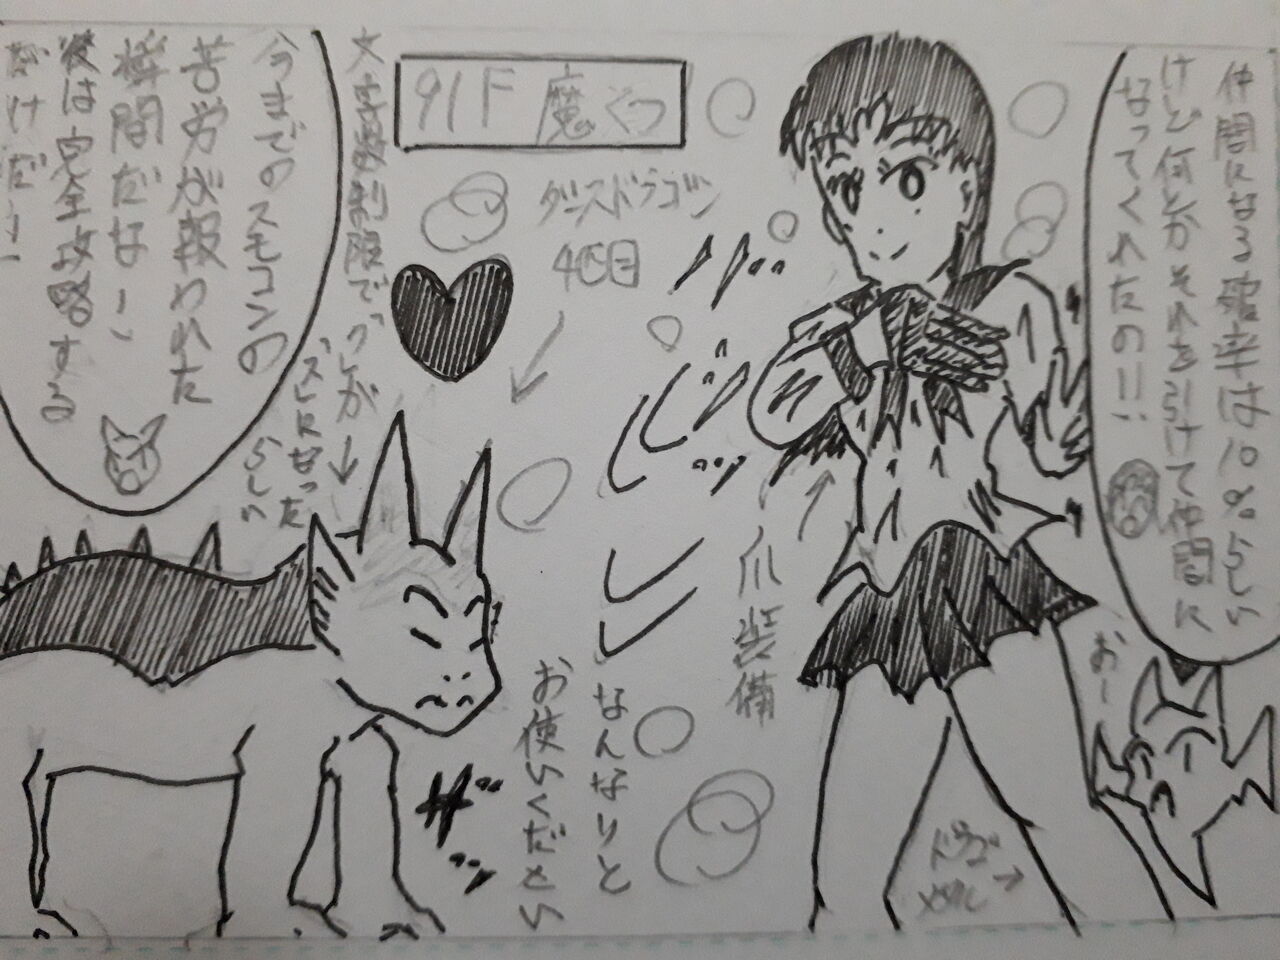 仲間になる確率は10%らしい
けど何とかそれを引けて仲間に
なってくれたの!!
91F 魔くつ
ダースドラゴン
4匹目
文字数制限で“しが
“スビになった
らしい
今までのスモコンの
苦労が報われた
瞬間だなー
後は完全攻略する
だけだー!
爪装備
おー
なんなりと
お使いください
ザッ
ドラゴ
メタル